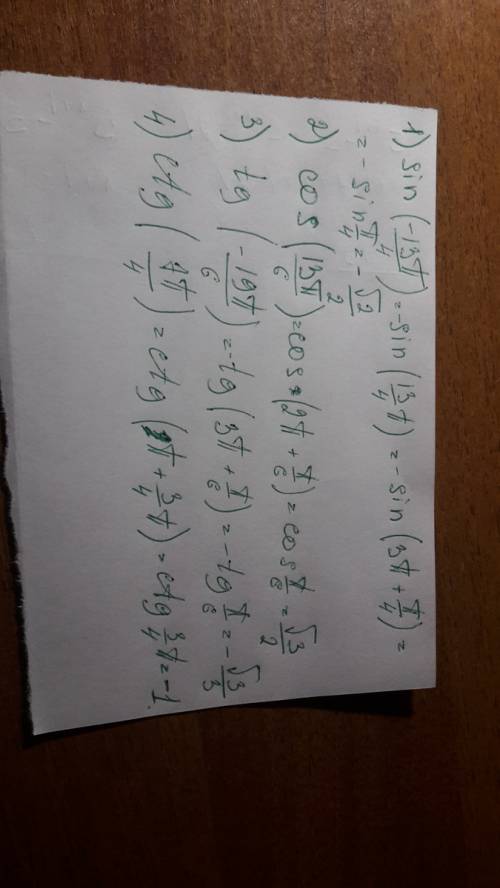 1) sin (-13π/4) = -sin (13/4 π) = -sin (3π + π/4) =
= - sin π/4 = - √2/2
2) cos (13π/6) = cos (2π + π/6) = cos π/6 = √3/2
3) tg (-19π/6) = -tg (3π + π/6) = -tg π/6 = - √3/3
4) ctg (7π/4) = ctg (π + 3/4 π) = ctg 3/4 π = -1.